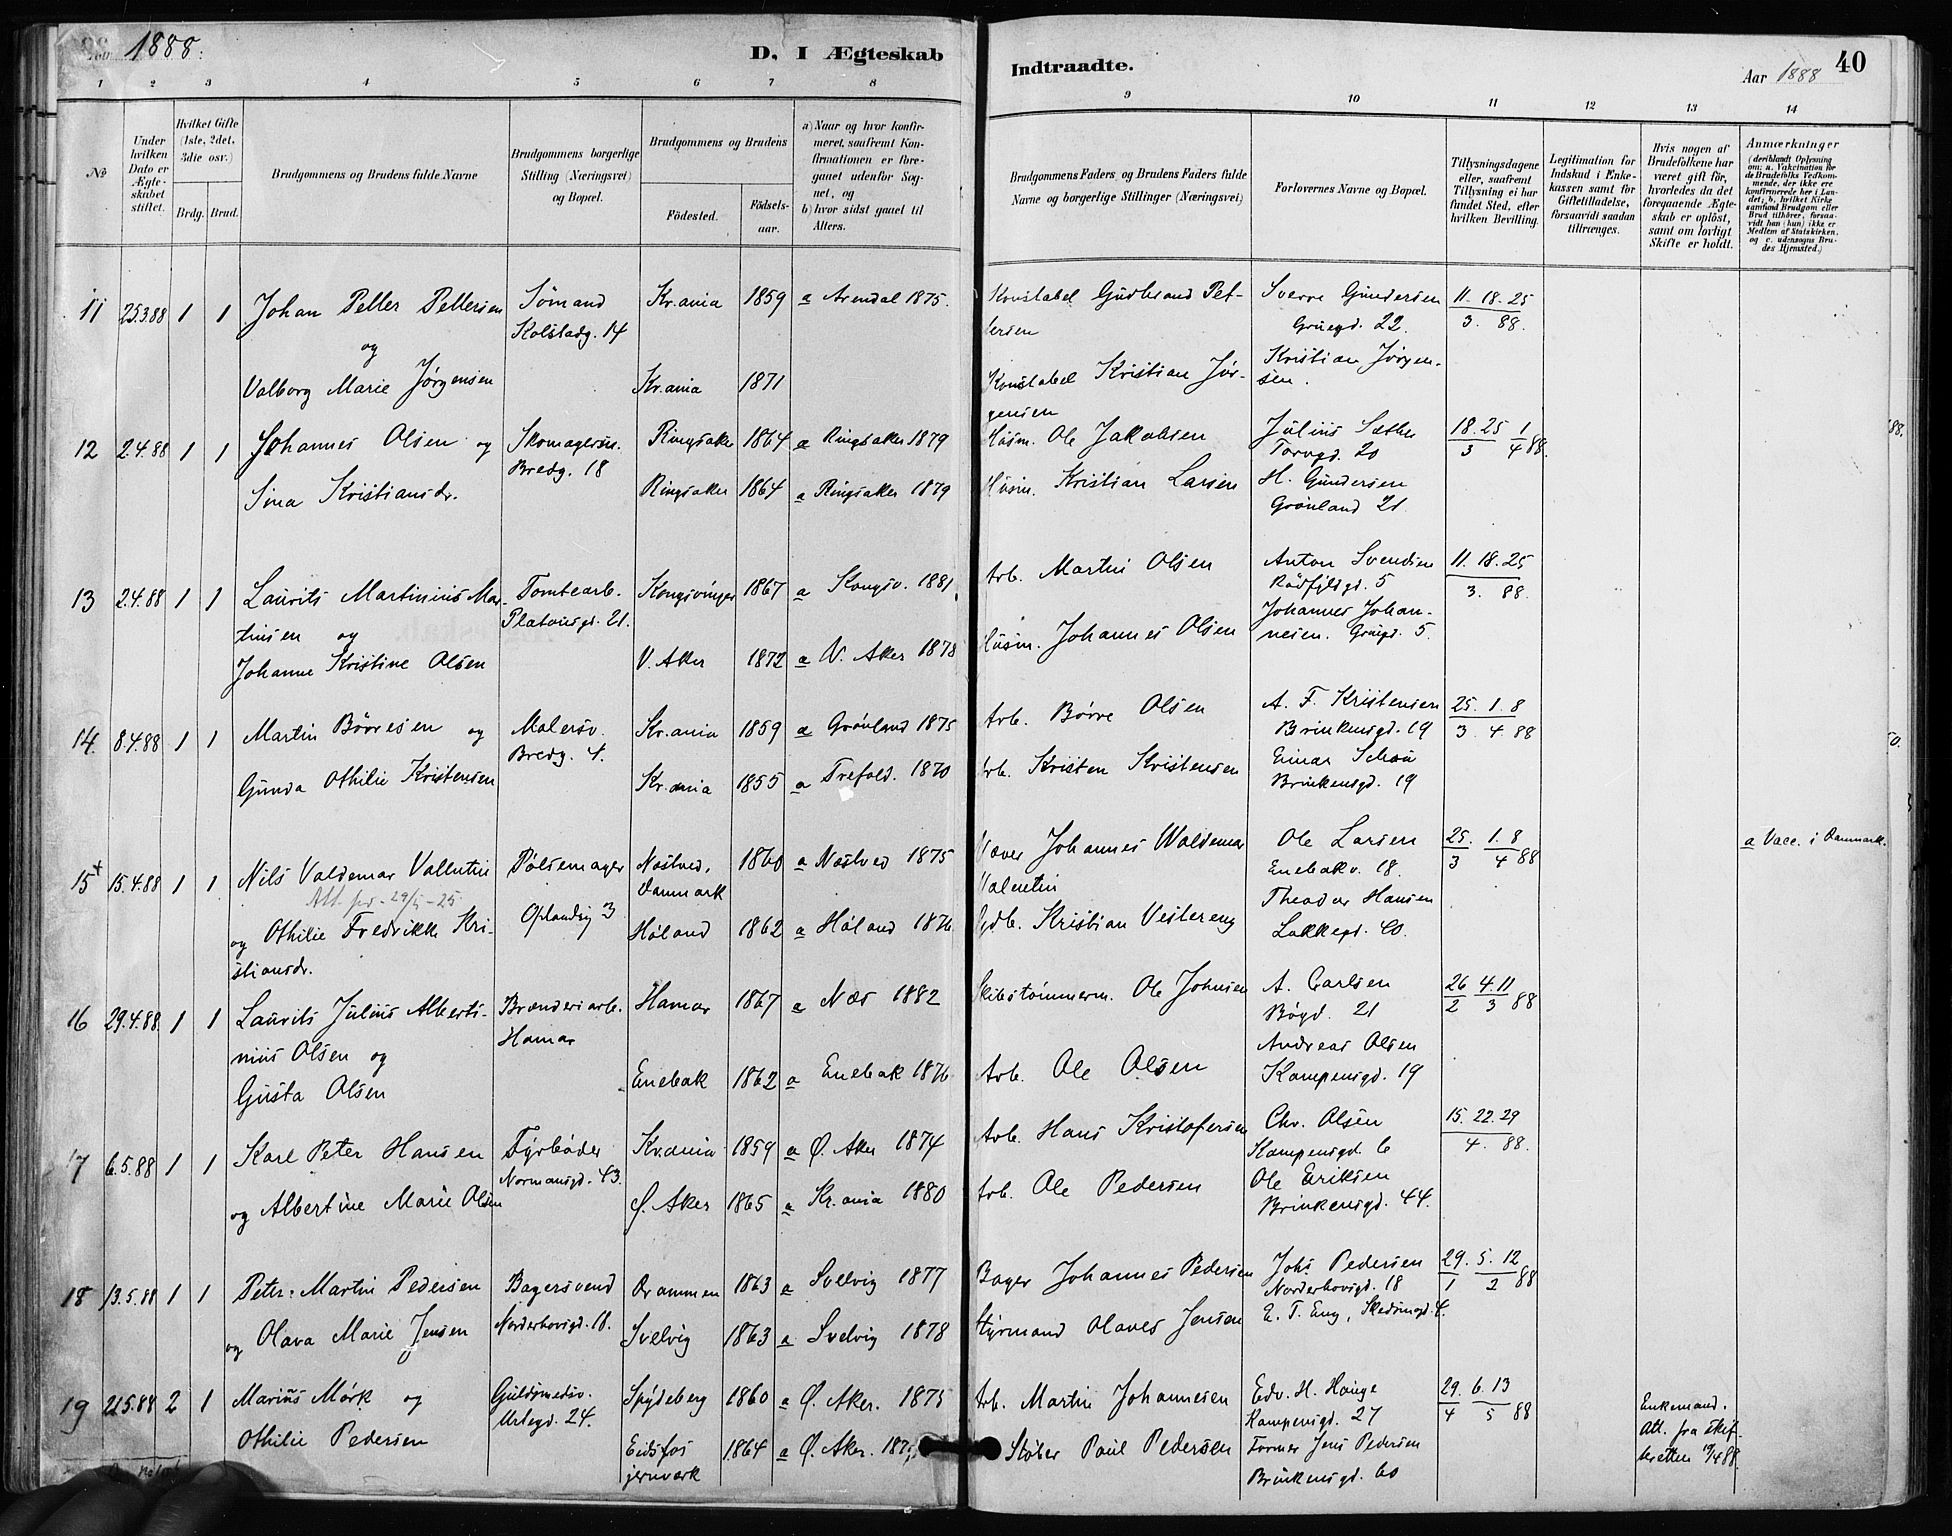 1888.
D. I Ægteskab
Indtraadte.
Aar 1888
40
1 2 3 4 5 6 7 8
9 10 11 12 13 14
No
Under hvilken Dato er Ægteskabet stiftet.
Hvilket Gifte (1ste, 2det, 3die osv.)
Brdg. Brud.
Brudgommens og Brudens fulde Navne
Brudgommens borgerlige Stilling (Næringsvei) og Bopæl.
Brudgommens og Brudens
Fødested.
Fødsels-aar.
a) Naar og hvor konfirmeret, saafremt Konfirmationen er foregaaet udenfor Sognet, og
b) hvor sidst gaaet til Alters.
Brudgommens Faders og Brudens Faders fulde Navne og borgerlige Stillinger (Næringsvei)
Forlovernes Navne og Bopæl.
Tillysningsdagene eller, saafremt Tillysning ei har fundet Sted, efter hvilken Bevilling.
Legitimation for Indskud i Enkekassen samt for Giftetilladelse, forsaavidt saadan tiltrænges.
Hvis nogen af Brudefolkene har været gift før, hvorledes da det foregaaende Ægteskab er opløst, samt om lovligt Skifte er holdt.
Anmerkninger
(deriblandt Oplysning om: a. Vakcination for de Brudefolks Vedkommende, der ikke ere konfirmerede her i Landet; b. hvilket Kirkesamfund Brudgom eller Brud tilhører, forsaavidt han (hun) ikke er Medlem af Statskirken, og c. udensogns Brudes Hjemsted.)
11 25.3.88 1 1 Johan Petter Pettersen Sømand Kr.ania 1859 a Arendal 1875. Konstabel Gudbrand Pet- Sverre Gundersen 11. 18. 25
og Kolstadg. 14 tersen Gruegd. 22. 3. 88.
Valborg Marie Jørgensen Kr.ania 1871 Konstabel Kristian Jør- Kristian Jørgen-
gensen sen.
12 2.4.88 1 1 Johannes Olsen og Skomagersv. Ringsaker 1864 a Ringsaker 1879 Husm. Ole Jakobsen Julius Sæther 18. 25 1
Bredg. 18 Torvgd. 20 3 4 88.
Sina Kristiansdr. Ringsaker 1864 a Ringsaker 1879 Husm. Kristian Larsen H. Gundersen
Grønland 21.
13 2.4.88 1 1 Laurits Martinius Mar- Tomtearb. Kongsvinger 1867 a Kongsv. 1881. Arb. Martin Olsen Anton Svendsen 11. 18. 25
tinsen og Platousgd. 21. Rødfyldgd. 5 3. 88.
Johanne Kristine Olsen V. Aker 1872 a V. Aker 1878 Husm. Johannes Olsen Johannes Johan-
nesen. Gruegd. 5.
14. 8.4.88 1 1 Martin Börresen og Malersv. Kr.ania 1859 a Grönland 1875 Arb. Börre Olsen A. F. Kristensen 25. 1. 8
Bredg. 4. Brinkensgd. 19 3. 4. 88
Gunda Othilie Kristensen Kr.ania 1855 a Trefold. 1870 Arb. Kristen Kristensen Einar Schou
Brinkensgd. 19
15+ 15.4.88 1 1 Nils Valdemar Vallentin Pølsemager Næstved, 1860 a Næstved 1875 Væver Johannes Waldemar Ole Larsen 25. 1. 8 a Vacc. i Danmark.
Att. pr. 29/5-25 Danmark Valentin Enebakv. 18. 3 4 88
og Othilie Fredrikke Kri- Oplandsg 3 Høland 1862 a Høland 1876 Gdb. Kristian Vestereng Theodor Hansen
stiansdr. Lakkegd. 40.
16 29.4.88. 1 1 Laurits Julius Alberti- Brænderiarb. Hamar 1867 a Næs 1882 Skibstømmerm. Ole Johnsen A. Carlsen 26 4. 11
nius Olsen og Hamar Bøgd. 21 2 3 88
Gusta Olsen Enebak 1862 a Enebak 1876 Arb. Ole Olsen Andreas Olsen
Kampensgd. 19
17 6.5.88 1 1 Karl Peter Hansen Fyrbøder Kr.ania 1859 a Ø. Aker 1874 Arb. Hans Kristofersen Chr. Olsen 15. 22. 29
Normansgd. 43. Kampensgd. 6 4. 88.
og Albertine Marie Olsen Ø. Aker 1865 a Kr.ania 1880 Arb. Ole Pedersen Ole Eriksen
Brinkensgd. 44.
18 13.5.88 1 1 Peter Martin Pedersen Bagersvend Drammen 1863 a Svelvig 1877 Bager Johannes Pedersen Johs Pedersen 29. 5. 12
Norderhovsgd. 18. Norderhovsgd. 18 1 2 88
og Olava Marie Jensen Svelvig 1863 a Svelvig 1878 Styrmand Olaves Jensen E. T. Eng, Skedsmogd. 4.
19 21.5.88 2 1 Marius Mørk og Guldsmedsv. Spydeberg 1860 a Ø. Aker. 1875 Arb. Martin Johannesen Edv. H. Hauge 29. 6. 13 Enkemand.
Urtegd. 24. Kampensgd. 27 4 5 88 Att. fra Skif-
Othilie Pedersen Eidsfos 1864 a Ø. Aker. Støber Paul Pedersen Former Jens Pedersen teretten 19/4 88.
jernværk Brinkensgd. 60